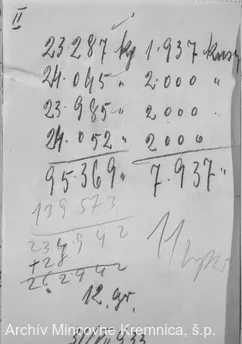 II
23.287 kg 1.937 kusov
24.045 " 2.000 "
23.985 " 2000 "
24.052 " 2000 "
95.369 " 7.937 "
139 573
234.942
+28
262942
12. gr.
Archív Mincovne Kremnica, š.p.